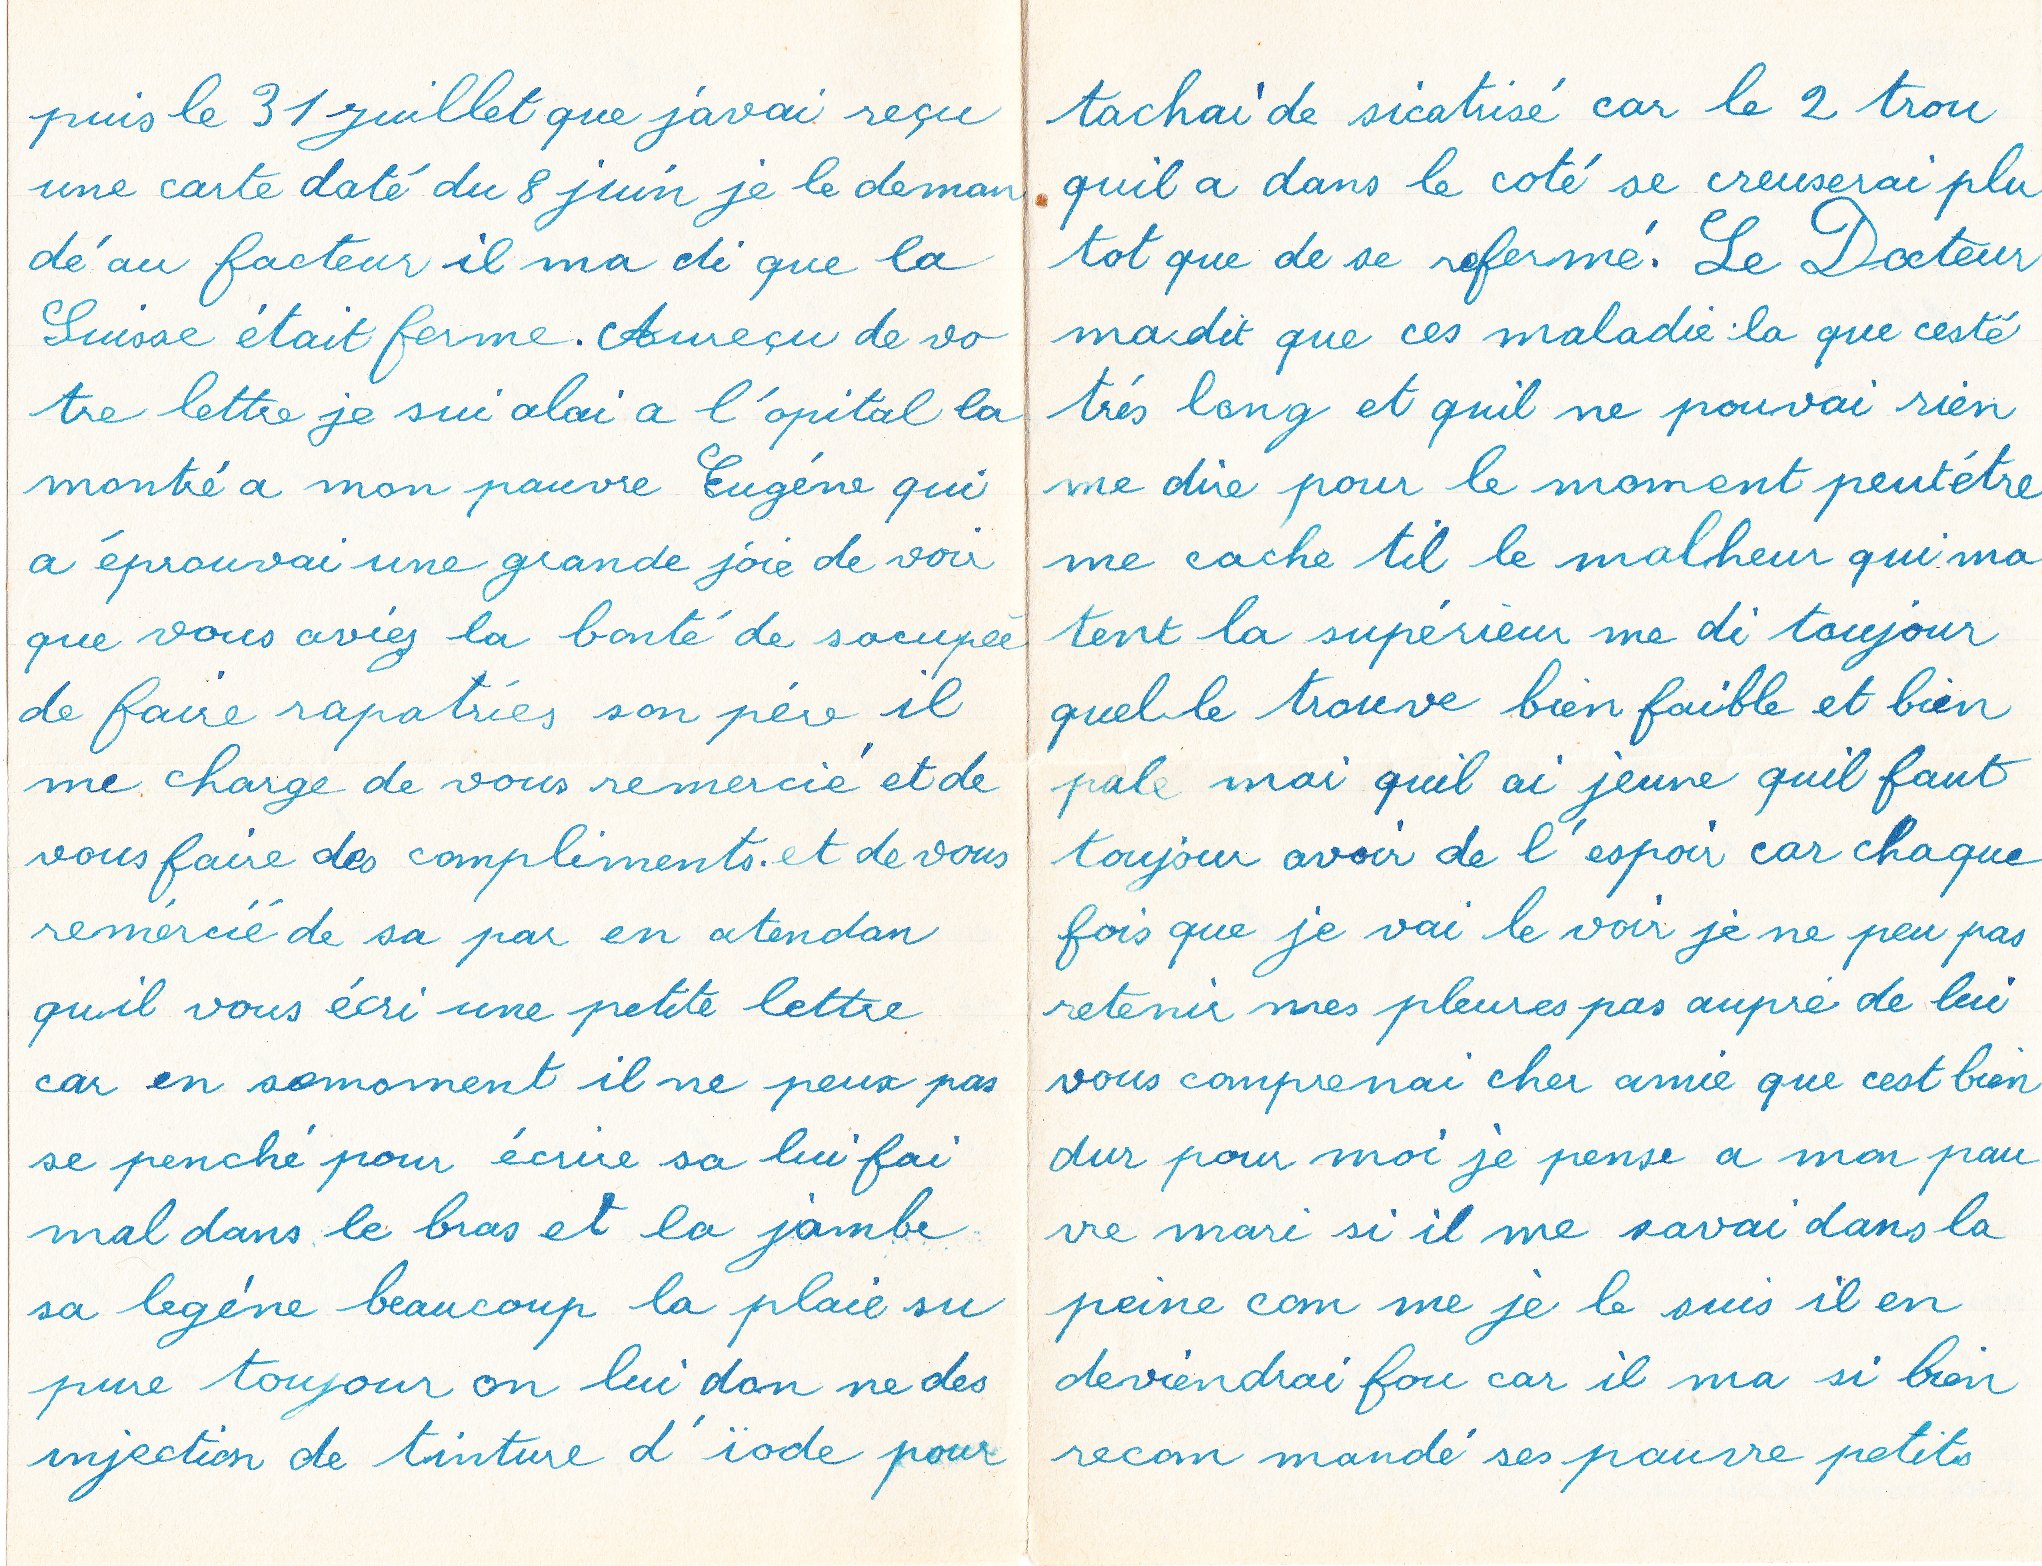 puis le 31 juillet que j'avai reçu
une carte daté du 8 juin je le deman
dé au facteur il ma di que la
Suisse était ferme. Aureçu de vo
tre lettre je sui alai a l'opital la
montré a mon pauvre Eugéne qui
a éprouvai une grande joie de voir
que vous aviez la bonté de socupée
de faire rapatriés son pére il
me charge de vous remercié et de
vous faire des compliments. et de vous
remércié de sa par en atendan
quil vous écri une petite lettre
car en somoment il ne peux pas
se penché pour écrire sa lui fai
mal dans le bras et la jambe
sa legéne beaucoup la plaie su
pure toujour on lui don ne des
injection de tinture d'ïode pour
tachai de sicatrisé car le 2 trou
quil a dans le coté se creuserai plu
tot que de se refermé. Le Docteur
ma dit que ces maladie la que cesté
trés long et quil ne pouvai rien
me dire pour le moment peutétre
me cache til le malheur qui ma
tent la supérieur me di toujour
quel le trouve bien faible et bien
pale mai quil ai jeune quil faut
toujour avoir de l'espoir car chaque
fois que je vai le voir je ne peu pas
retenir mes pleures pas aupré de lui
vous comprenai cher amie que cest bien
dur pour moi je pense a mon pau
vre mari si il me savai dans la
peine com me je le suis il en
deviendrai fou car il ma si bien
recom mandé ses pauvre petits